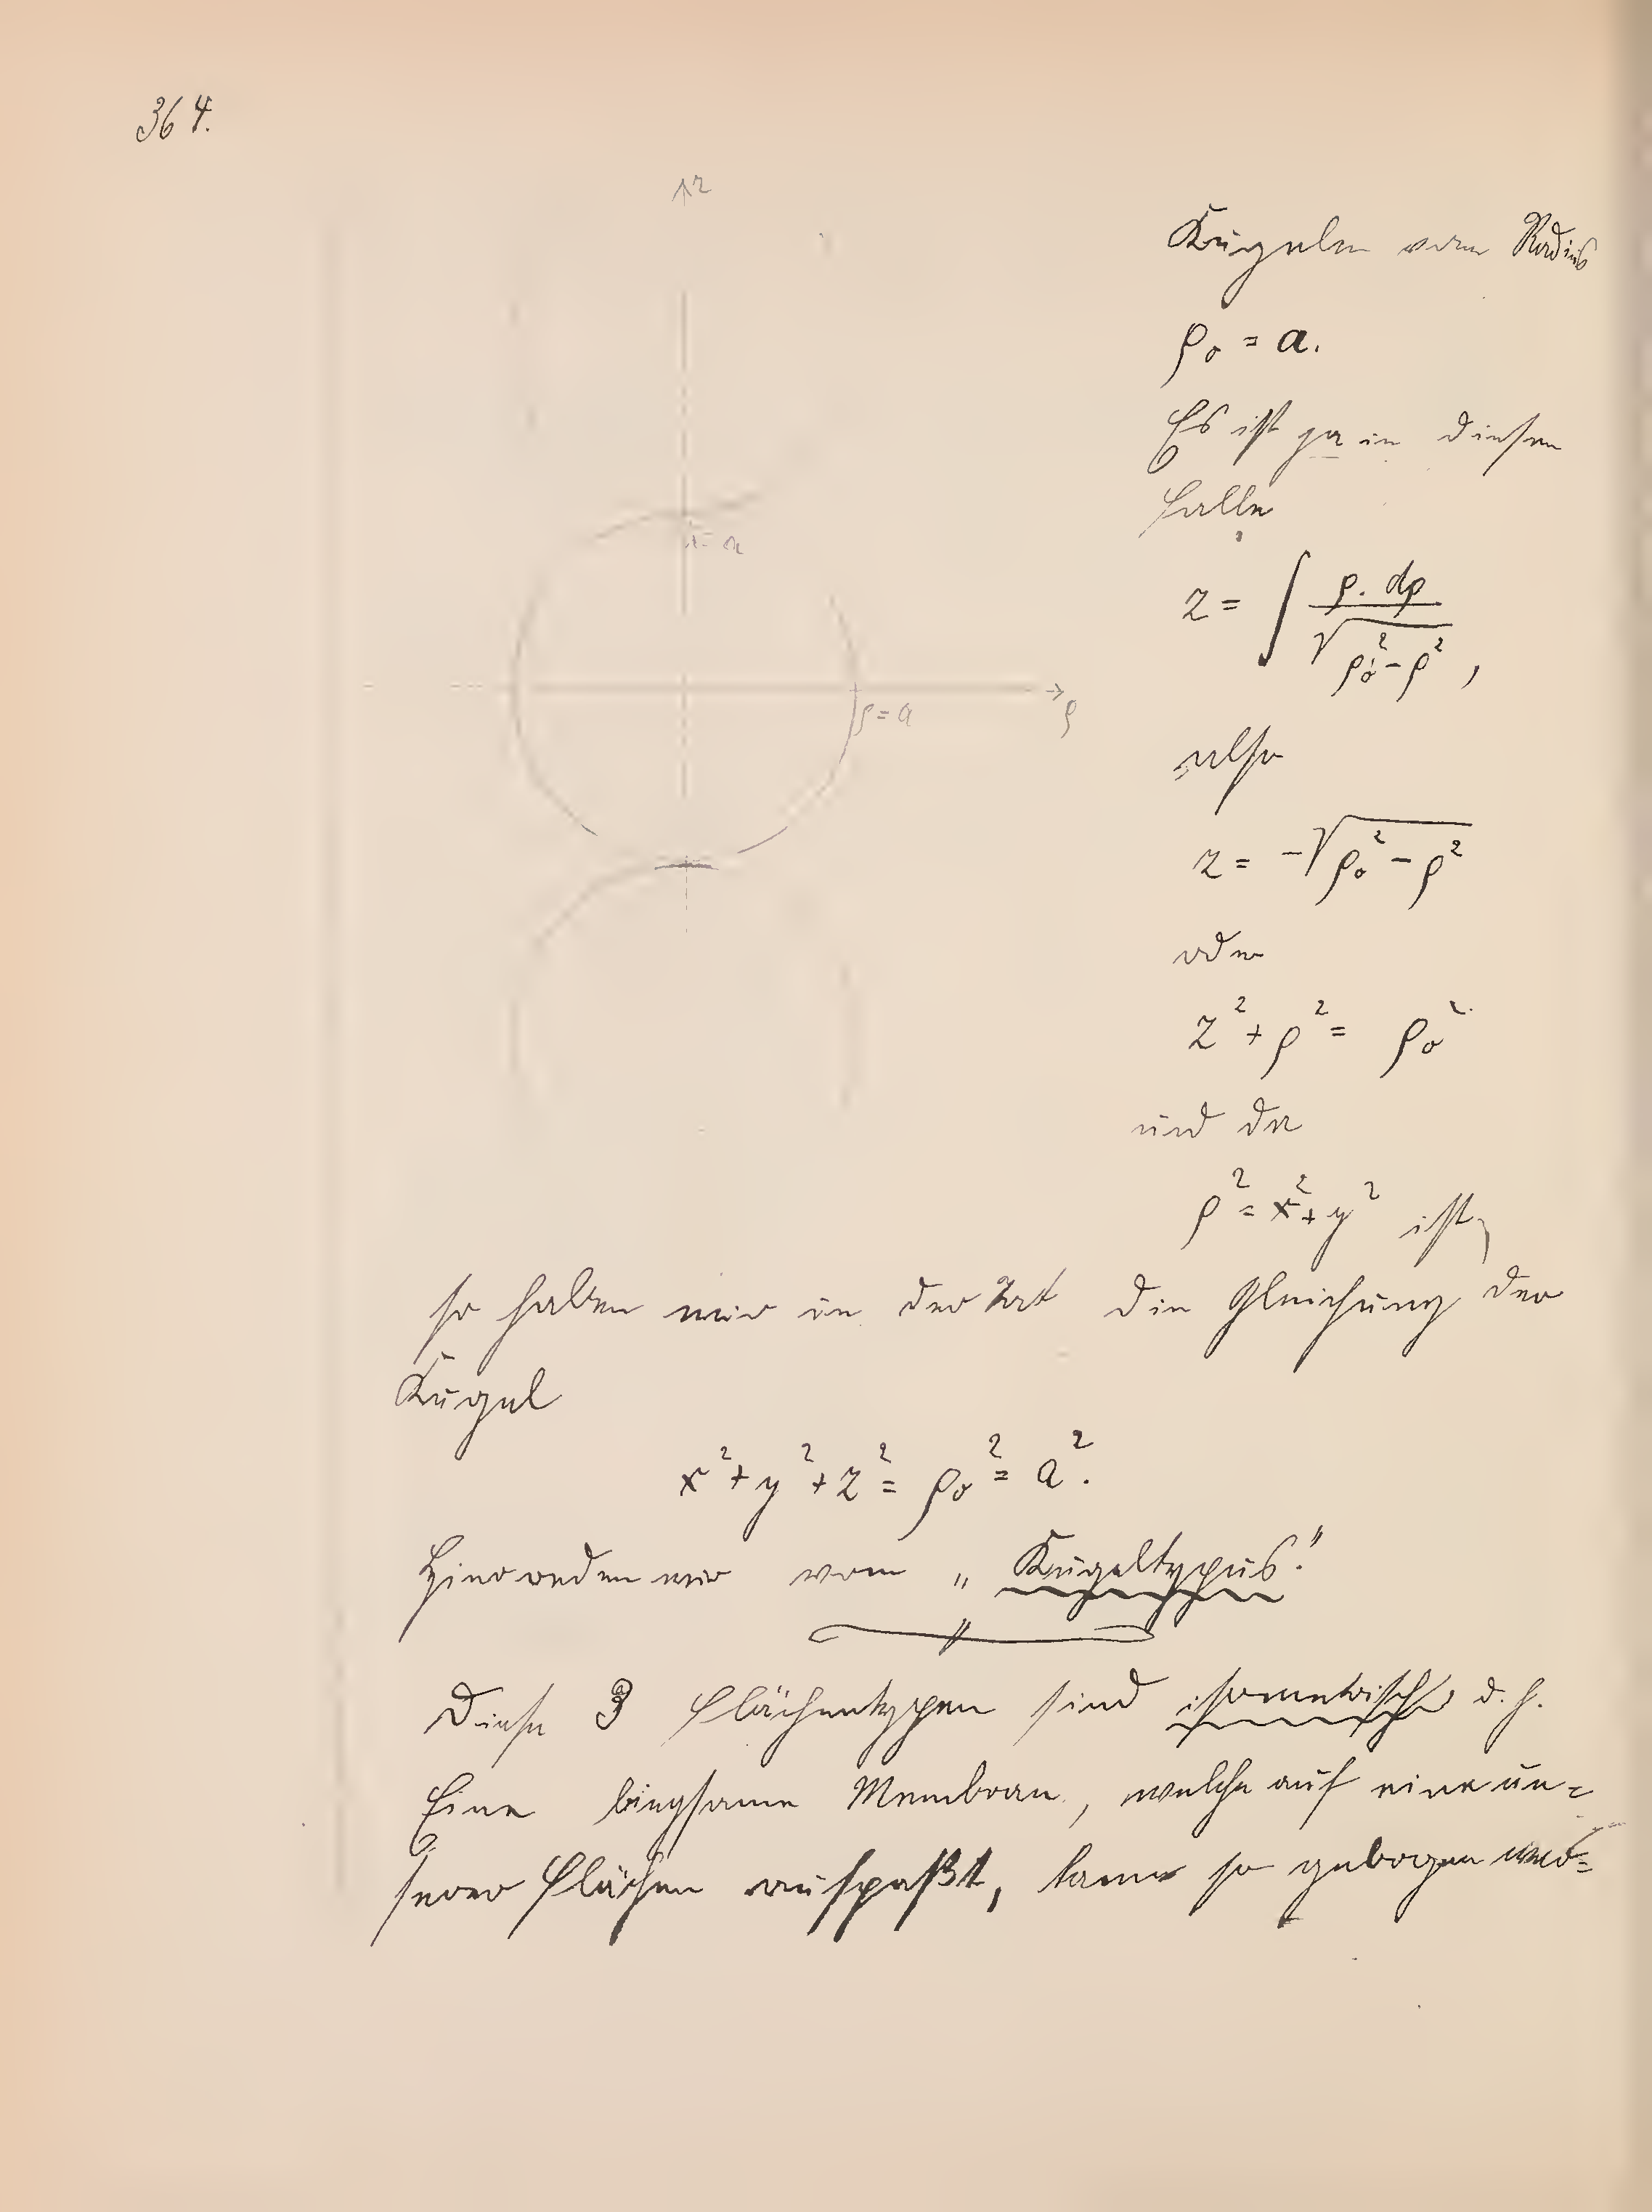 364.
z
z = a
ρ = a
ρ
Kugeln vom Radius
ρ₀ = a.
Es ist ja in diesem
Falle
z = ∫ ρ. dρ / √(ρ₀² - ρ²) ,
also
z = -√(ρ₀² - ρ²)
oder
z² + ρ² = ρ₀².
und da
ρ² = x² + y² ist,
so haben wir in der Tat die Gleichung der
Kugel
x² + y² + z² = ρ₀² = a².
Hier reden wir vom „Kugeltypus."
Diese 3 Flächentypen sind isometrisch d. h.
Eine biegsame Membran, welche auf eine un=
serer Flächen aufpaßt, kann so gebogen wer=